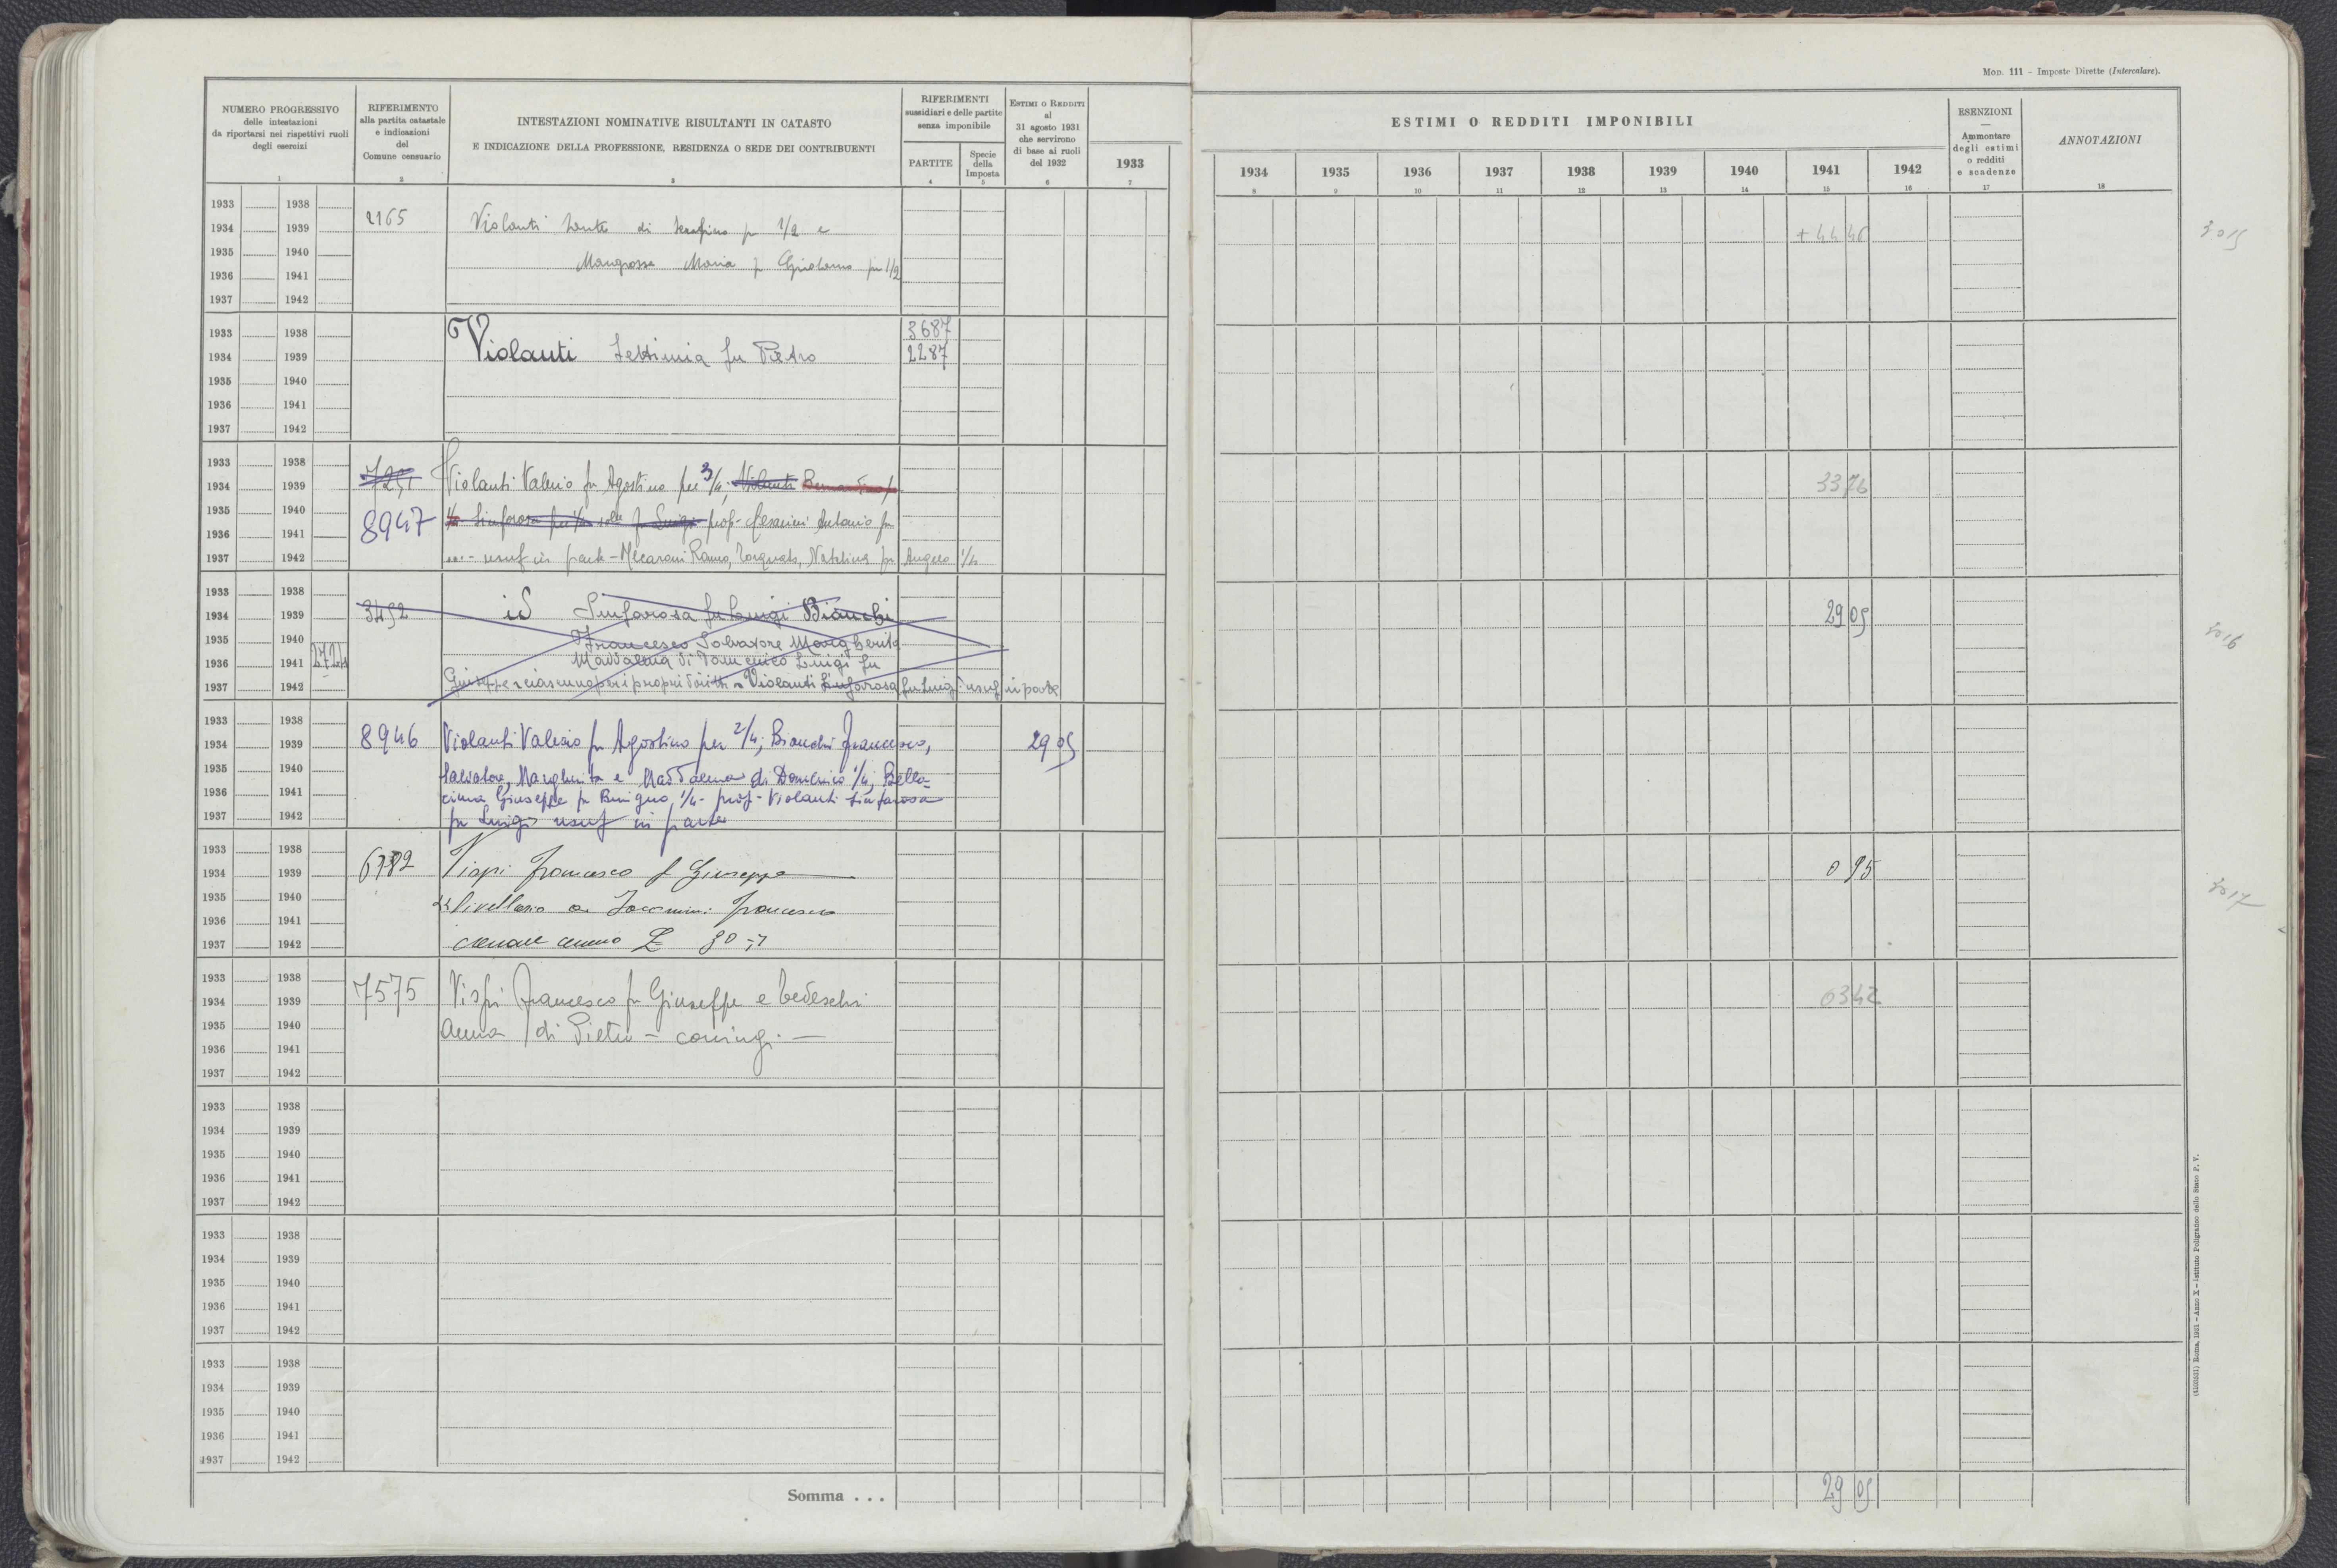 Mod. 111 - Imposte Dirette (Intercalare).
NUMERO PROGRESSIVO
delle intestazioni
da riportarsi nei rispettivi ruoli
degli esercizi
RIFERIMENTO
alla partita catastale
e indicazioni
del
Comune censuario
INTESTAZIONI NOMINATIVE RISULTANTI IN CATASTO
E INDICAZIONE DELLA PROFESSIONE, RESIDENZA O SEDE DEI CONTRIBUENTI
RIFERIMENTI
sussidiari e delle partite
senza imponibile
PARTITE
Specie
della
Imposta
ESTIMI O REDDITI
al
31 agosto 1931
che servirono
di base ai ruoli
del 1932
ESTIMI O REDDITI IMPONIBILI
1933 1934 1935 1936 1937 1938 1939 1940 1941 1942
ESENZIONI
Ammontare
degli estimi
o redditi
e scadenze
ANNOTAZIONI
1 2 3 4 5 6 7 8 9 10 11 12 13 14 15 16 17 18
1933 1938
1934 1939 2165 Violanti di p 1/2 e + 44 46 3015
1935 1940
1936 1941 Maria 1/2
1937 1942
1933 1938 3687
1934 1939 Violanti Settimia fu Pietro 2287
1935 1940
1936 1941
1937 1942
1933 1938
1934 1939 Violanti Valerio fu Agostino per 3/4; Violanti 33 76
1935 1940
1936 1941 8947 Sinforosa fu Luigi prop - Antonio fu
1937 1942 usuf in parte - Natalina fu Angelo
1933 1938
1934 1939 3492 id Sinforosa fu Luigi Bianchi 29 05
1935 1940 Francesco Salvatore Margherita
1936 1941 2724 Maddalena di Domenico Luigi fu 3016
1937 1942 Giuseppe ciascuno per i propri diritti Violanti Sinforosa fu Luigi usuf in parte
1933 1938
1934 1939 8946 Violanti Valerio fu Agostino per 2/4; Bianchi Francesco, 29 05
1935 1940 Salvatore, Margherita e Maddalena di Domenico 1/4; Bella-
1936 1941 cima Giuseppe fu Benigno, 1/4 - prop - Violanti Sinforosa
1937 1942 fu Luigi usuf in parte
1933 1938
1934 1939 Vispi Francesco f Giuseppe 0 95
1935 1940 livellario a Francesco 3017
1936 1941
1937 1942 canone annuo £
1933 1938
1934 1939 7575 Vispi Francesco fu Giuseppe e Tedeschi 63 42
1935 1940 Anna di Pietro - coniugi -
1936 1941
1937 1942
1933 1938
1934 1939
1935 1940
1936 1941
1937 1942
1933 1938
1934 1939
1935 1940
1936 1941
1937 1942
1933 1938
1934 1939
1935 1940
1936 1941
1937 1942
Somma . . . 29 05
Roma, 1931 - Anno X - Istituto Poligrafico dello Stato P. V.